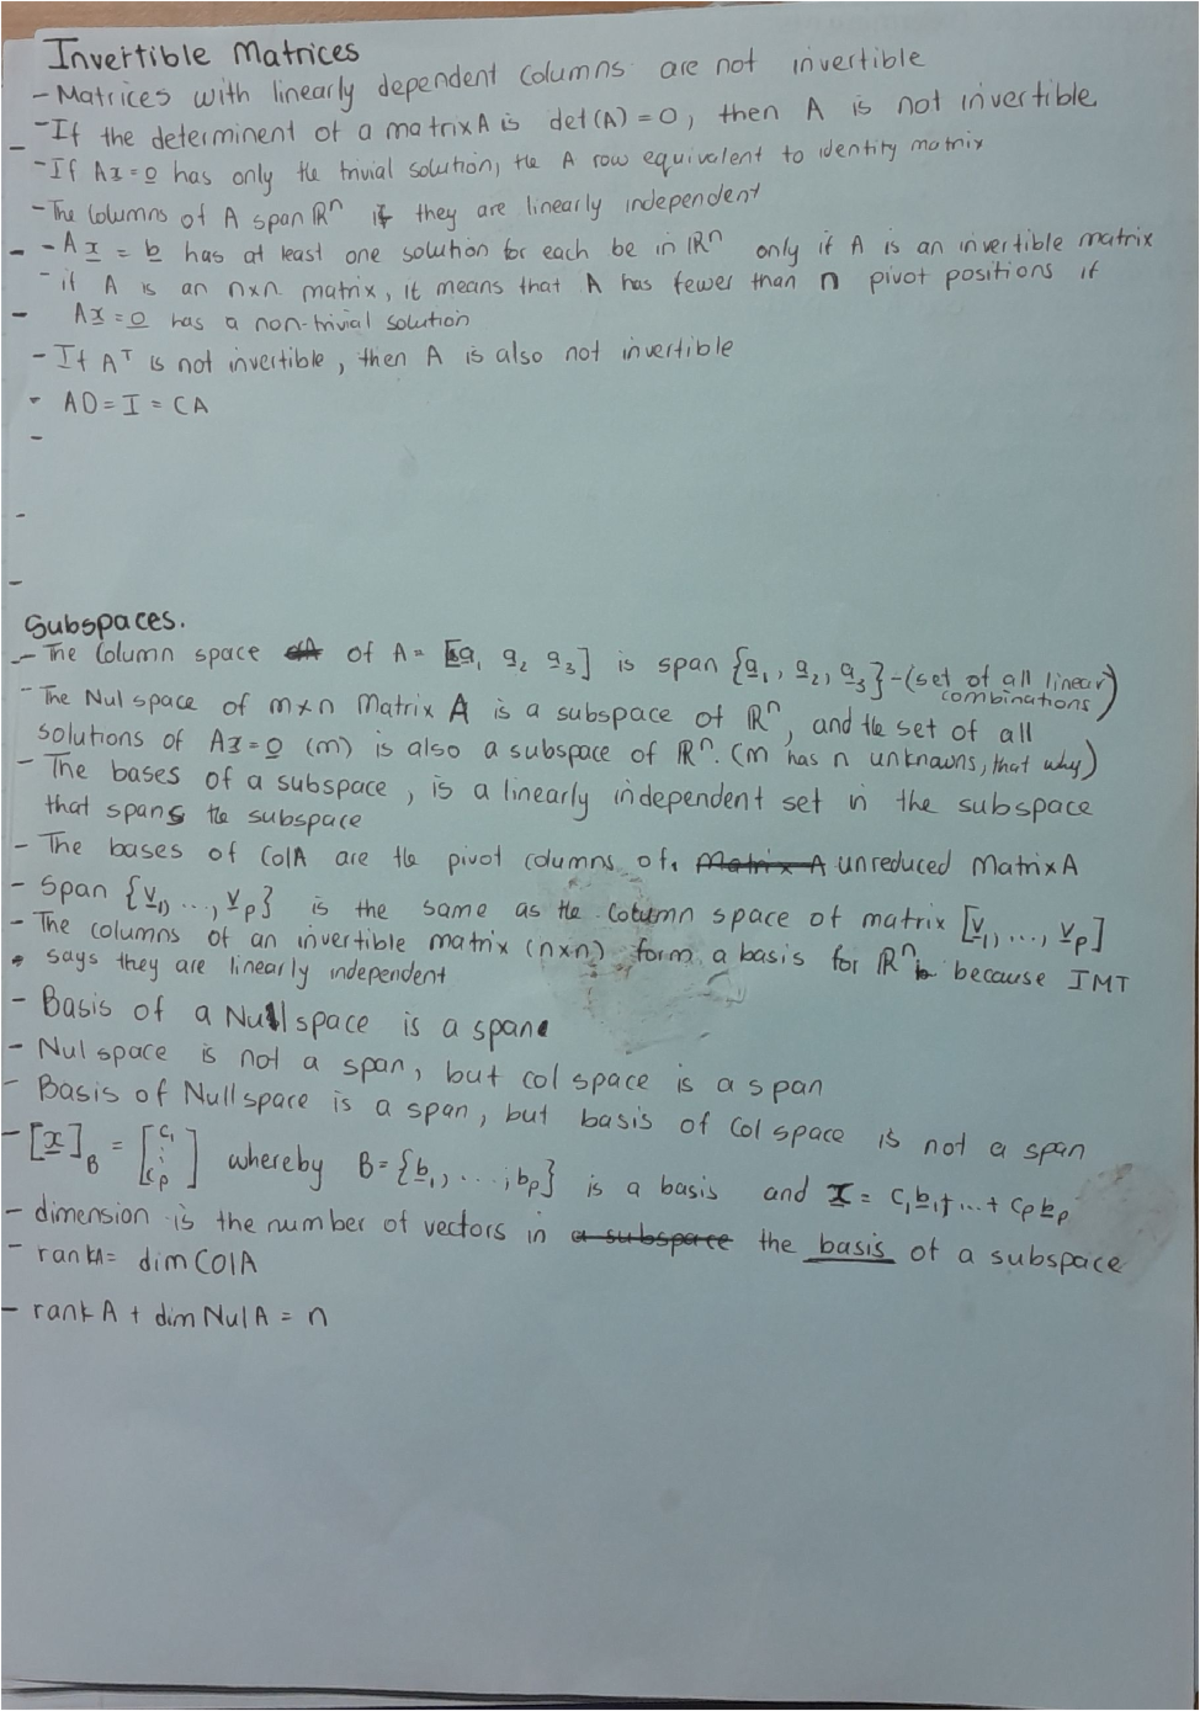 Invertible Matrices
- Matrices with linearly dependent columns are not invertible
- If the determinent of a matrix A is det(A) = 0, then A is not invertible
- If Ax = 0 has only the trivial solution, the A row equivalent to identity matrix
- The columns of A span ℝⁿ if they are linearly independent
- Ax = b has at least one solution for each be in ℝⁿ only if A is an invertible matrix
- if A is an n×n matrix, it means that A has fewer than n pivot positions if
Ax = 0 has a non-trivial solution
- If Aᵀ is not invertible, then A is also not invertible
- AD = I = CA
Subspaces.
- The Column space of A = [a₁ a₂ a₃] is span {a₁, a₂, a₃} - (set of all linear
combinations)
- The Nul space of m×n Matrix A is a subspace of ℝⁿ, and the set of all
solutions of Ax = 0 (m) is also a subspace of ℝⁿ. (m has n unknowns, that why)
- The bases of a subspace, is a linearly independent set in the subspace
that spans the subspace
- The bases of ColA are the pivot columns of Matrix A unreduced Matrix A
- Span {v₁, ..., vₚ} is the same as the column space of matrix [v₁, ..., vₚ]
- The columns of an invertible matrix (n×n) form a basis for ℝⁿ because IMT
says they are linearly independent
- Basis of a Null space is a span
- Nul space is not a span, but col space is a span
- Basis of Null space is a span, but basis of Col space is not a span
- [x]_B = [c₁ ⋮ cₚ] whereby B = {b₁, ..., bₚ} is a basis and x = c₁b₁ + ... + cₚbₚ
- dimension is the number of vectors in a subspace the basis of a subspace
- rankA = dim ColA
- rank A + dim Nul A = n